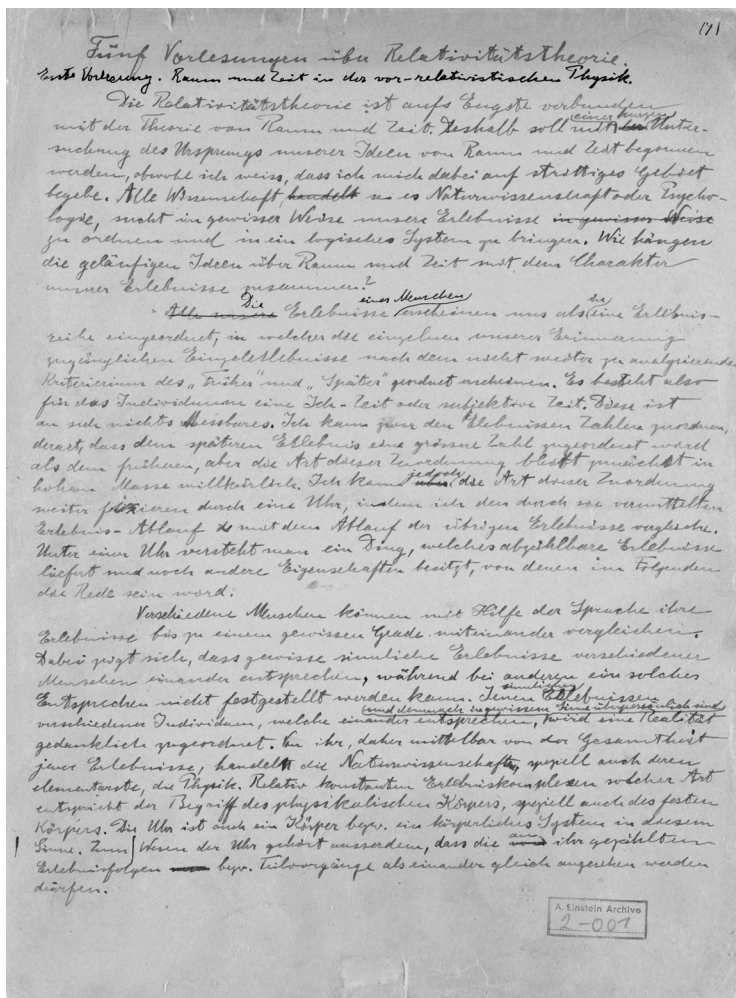 (1)
Fünf Vorlesungen über Relativitätstheorie.
Erste Vorlesung. Raum und Zeit in der vor-relativistischen Physik.
Die Relativitätstheorie ist aufs Engste verbunden
mit der Theorie von Raum und Zeit. Deshalb soll mit einer kurzen Unter-
suchung des Ursprungs unserer Ideen von Raum und Zeit begonnen
werden, obwohl ich weiss, dass ich mich dabei auf strittiges Gebiet
begebe. Alle Wissenschaft, handelt sei es Naturwissenschaft oder Psycho-
logie, sucht in gewisser Weise unsere Erlebnisse in gewisser Weise
zu ordnen und in ein logisches System zu bringen. Wie hängen
die geläufigen Ideen über Raum und Zeit mit dem Charakter
unserer Erlebnisse zusammen?
Alle unsere Die Erlebnisse eines Menschen erscheinen uns als eine Erlebnis-
reihe eingeordnet, in welcher die einzelnen unserer Erinnerung
zugänglichen Einzelerlebnisse nach dem nicht weiter zu analysierenden
Kriterierium des „Früher" und „Später" geordnet erscheinen. Es besteht also
für das Individuum eine Ich-Zeit oder subjektive Zeit. Diese ist
an sich nichts Messbares. Ich kann zwar den Erlebnissen Zahlen zuordnen,
derart, dass dem späteren Erlebnis eine grössere Zahl zugeordnet wird
als dem früheren, aber die Art dieser Zuordnung bleibt zunächst in
hohem Masse willkürlich. Ich kann jedoch die Art dieser Zuordnung
weiter fixieren durch eine Uhr, indem ich den durch sie vermittelten
Erlebnis-Ablauf mit dem Ablauf der übrigen Erlebnisse vergleiche.
Unter einer Uhr versteht man ein Ding, welches abzählbare Erlebnisse
liefert und noch andere Eigenschaften besitzt, von denen im Folgenden
die Rede sein wird.
Verschiedene Menschen können mit Hilfe der Sprache ihre
Erlebnisse bis zu einem gewissen Grade miteinander vergleichen.
Dabei zeigt sich, dass gewisse sinnliche Erlebnisse verschiedener
Menschen einander entsprechen, während bei anderen ein solches
Entsprechen nicht festgestellt werden kann. Jenen sinnlichen Erlebnissen
verschiedener Individuen, welche einander entsprechen, und demnach in gewissem Sinne überpersönlich sind, wird eine Realität
gedanklich zugeordnet. Von ihr, daher mittelbar von der Gesamtheit
jener Erlebnisse, handeln die Naturwissenschaften, speziell auch deren
elementarste, die Physik. Relativ konstanten Erlebniskomplexen solcher Art
entspricht der Begriff des physikalischen Körpers, speziell auch des festen
Körpers. Die Uhr ist auch ein Körper bezw. ein körperliches System in diesem
Sinne. Zum Wesen der Uhr gehört ausserdem, dass die an ihr gezählten
Erlebnisfolgen bezw. Teilvorgänge als einander gleich angesehen werden
dürfen.
A. Einstein Archive
2-001